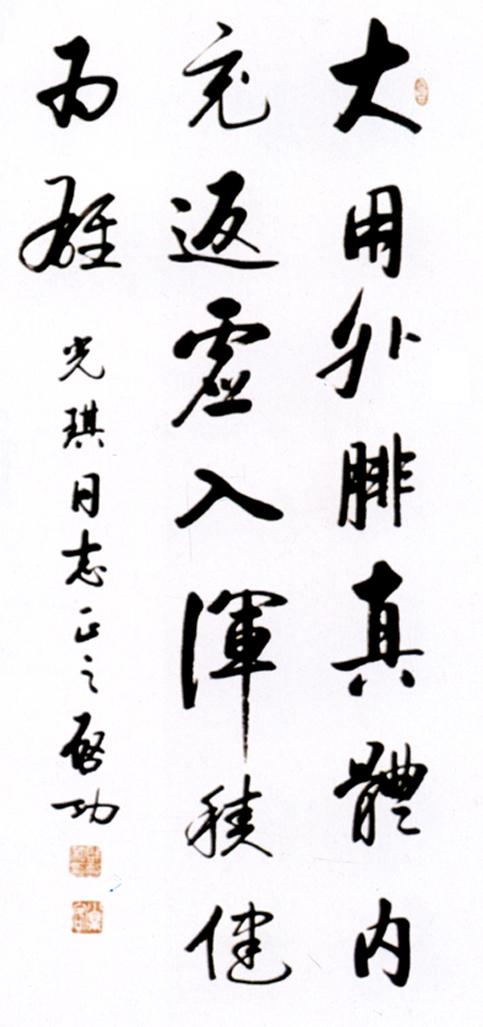 大用外腓真體内
充返虚入渾積健
为雄
光琪同志正之 啓功